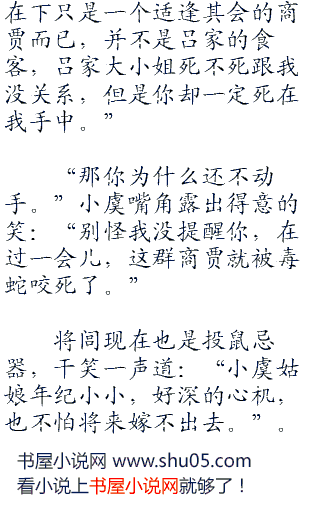 在下只是一个适逢其会的商
贾而已，并不是吕家的食
客，吕家大小姐死不死跟我
没关系，但是你却一定死在
我手中。”
“那你为什么还不动
手。”小虞嘴角露出得意的
笑：“别怪我没提醒你，在
过一会儿，这群商贾就被毒
蛇咬死了。”
将闾现在也是投鼠忌
器，干笑一声道：“小虞姑
娘年纪小小，好深的心机，
也不怕将来嫁不出去。”。
书屋小说网 www.shu05.com
看小说上书屋小说网就够了！